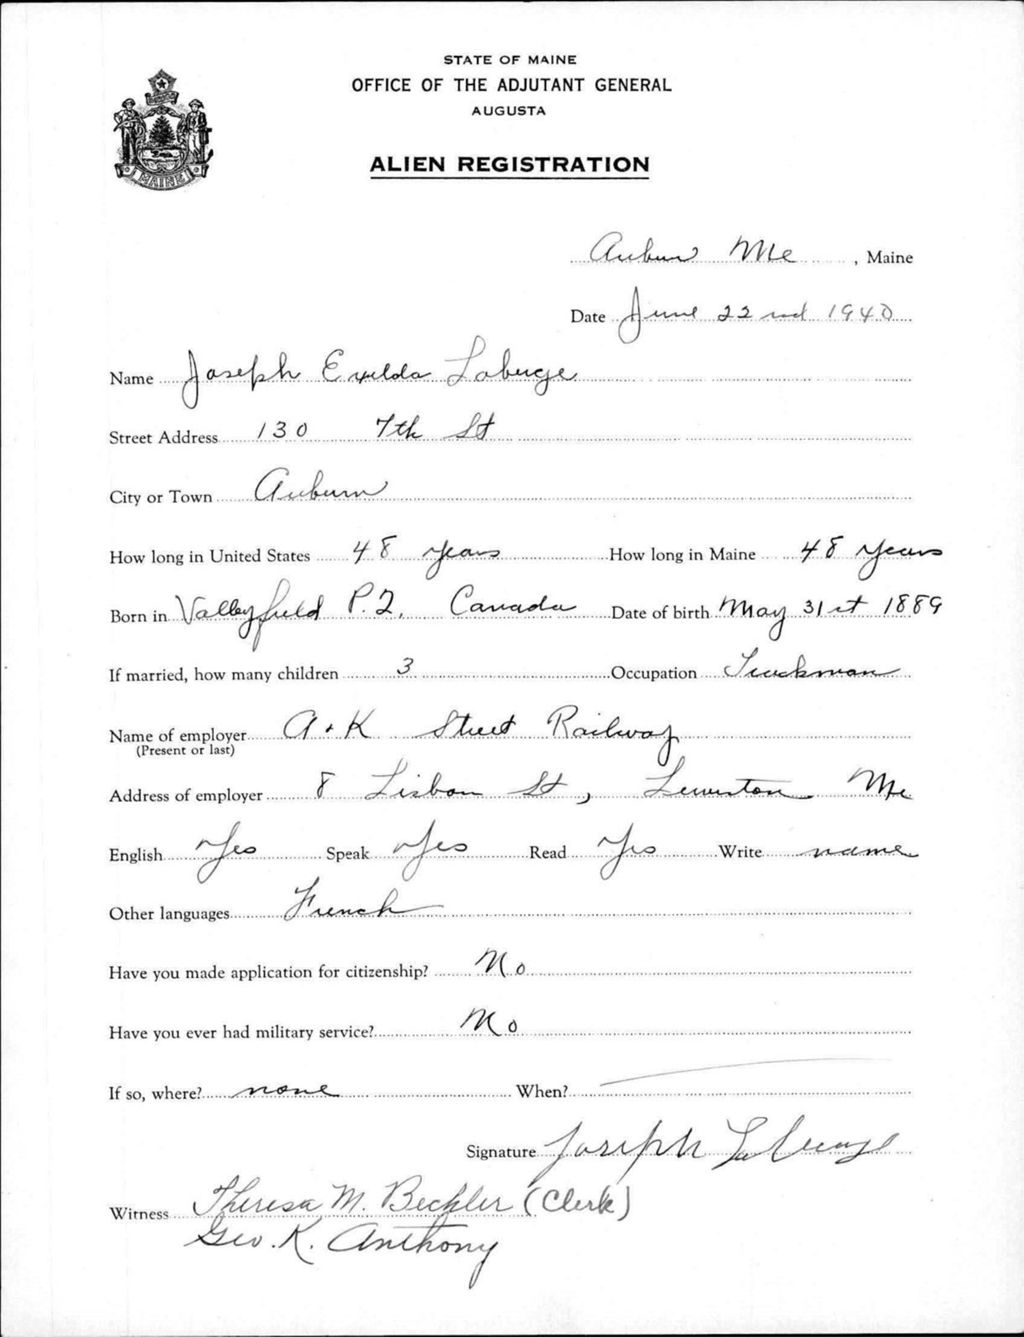 STATE OF MAINE
OFFICE OF THE ADJUTANT GENERAL
AUGUSTA
MAINE
ALIEN REGISTRATION
Auburn Me, Maine
Date June 22nd 1940
Name Joseph Exilda Laberge
Street Address 130 7th St
City or Town Auburn
How long in United States 48 years How long in Maine 48 years
Born in Valleyfield P.Q. Canada Date of birth May 31st 1889
If married, how many children 3 Occupation Truckman
Name of employer A + K Street Railway
(Present or last)
Address of employer 8 Lisbon St, Lewiston Me
English Yes Speak Yes Read Yes Write name
Other languages French
Have you made application for citizenship? No
Have you ever had military service? No
If so, where? none When?
Signature Joseph Laberge
Witness Theresa M. Beckler (Clerk)
Geo. K. Anthony